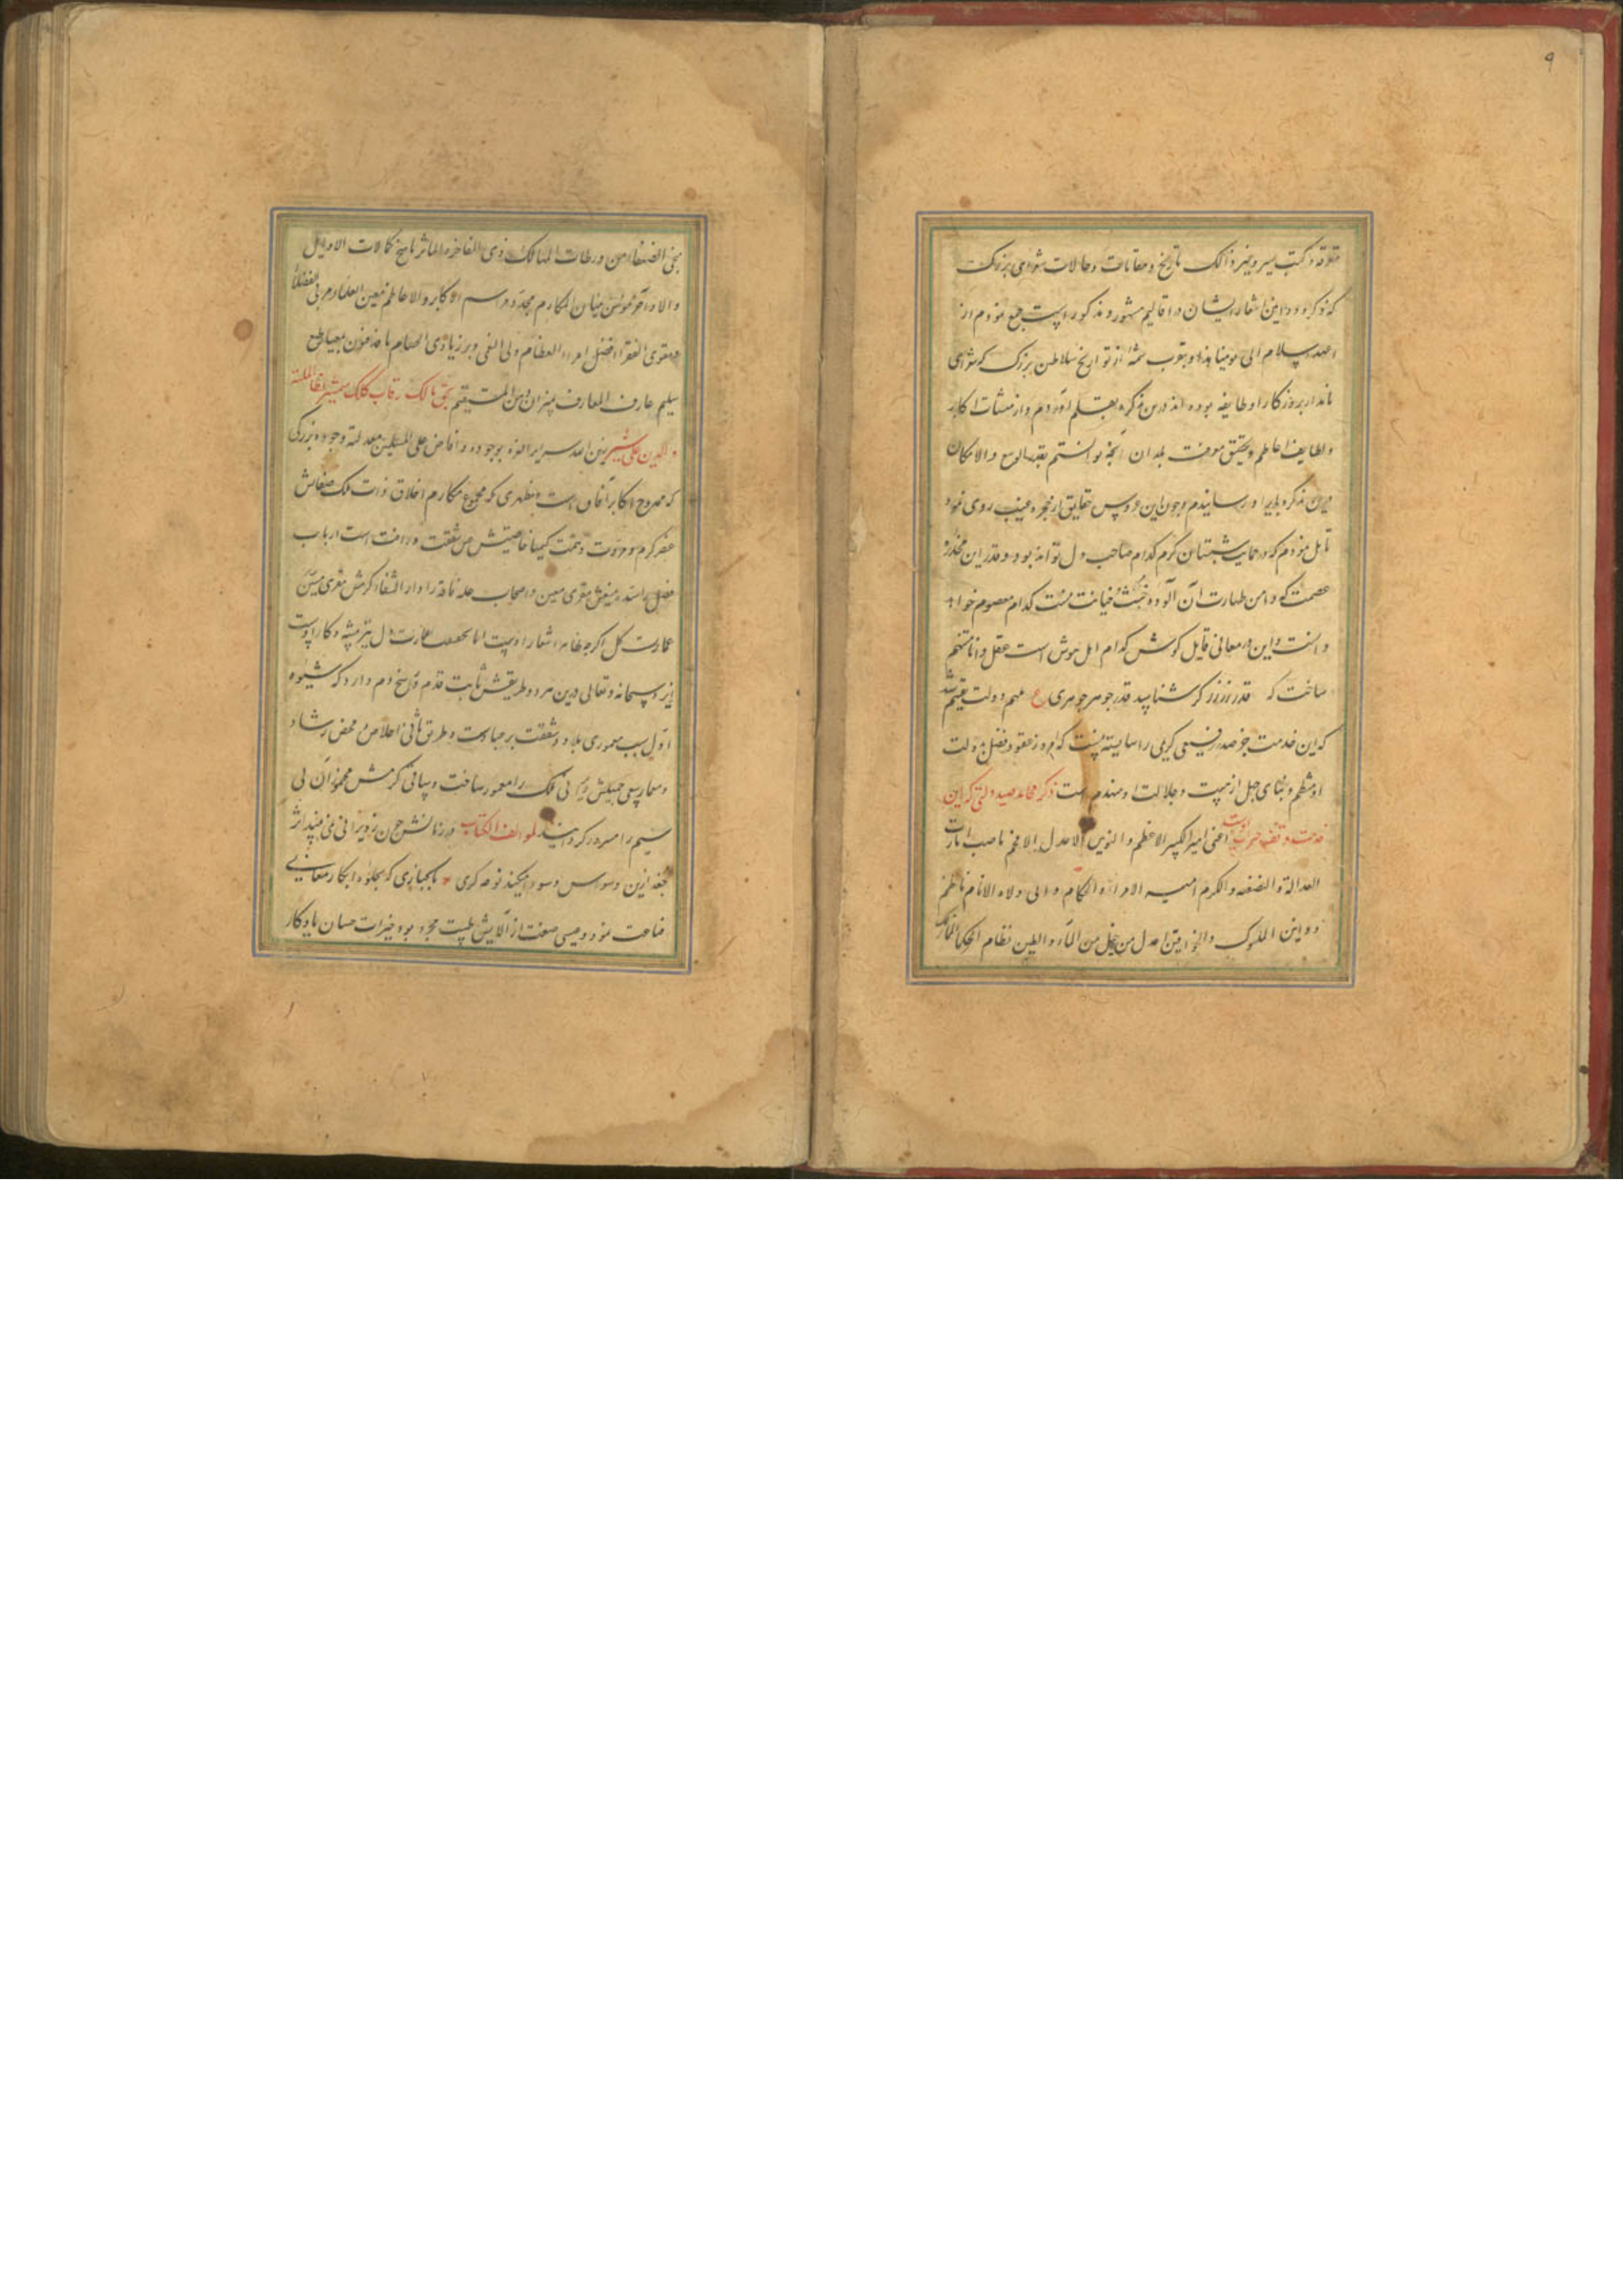 ۹
متفرقه و کتب سیر و غیر ذالک تاریخ و مقامات و حالات شعرای بزرگ
که ذکر و دواوین اشعار ایشان در اقالیم مشهور و مذکور است جمع نمودم از
عهد اسلام الی یومنا هذا و بتقریب شمهٔ از تواریخ سلاطین بزرگ که شعرای
نامدار بروزگار او طایفه بوده اند درین تذکره بقلم آوردم و از منشآت اکابر
و لطایف اعاظم و تحقیق معرفت بلدان آنچه توانستم بقدر الوسع والامکان
درین تذکره بایراد رسانیدم و چون این عروس حقایق از حجره غیب روی نمود
تامل نمودم که در حمایت شبستان کرم کدام صاحب دل تواند بود و قدر این مخدره
عصمت که دامن طهارت آن آلوده خبث خیانت نیست کدام معصوم خواهد
دانست و این در معانی قابل گوش کدام اهل هوش است عقل دانا متهم
ساخت که قدر زر زرگر شناسد قدر جوهر جوهری ع ملهم دولت یقینم شد
که این خدمت جز صدر رفیعی کریمی را شایسته نیست که امروز عقود فضل بدولت
او منظم و بنای جهل از هیبت و جلالت او منهدم است ذکر محامد صید دولتی که این
خدمت وقف حضرت اوست اعنی امیر الکبیر الاعظم و النویین الاعدل الافخم ناصب رایات
العدالة و النصفه و الکرم امیر الامراء و الحکام والی ولاه الانام ناظم
دواوین الملوک و الخواقین اعدل من خلق من المآء و الطین نظام الحکما الممالک
منجی الضعفاء من ورطات المهالک ذی المفاخر و الماثر ناسخ کمالات الاوایل
و الاواخر مؤسس مبانی المکارم مجدد مراسم الاکابر و الاعاظم معین العلماء و مربی الفضلا
و مقوی الفقرا افضل امراء العظام ولی النعم
سلیم عارف المعارف میزان دین المستقیم بحق مالک رقاب کلک شمشیر نظام الملة
و الدین علی شیر زین الله سریر العزه بوجوده و افاض علی المسلمین معدلته وجوده بزرگی
که ممدوح اکابر آفاق است و مظهری که مجمع مکارم اخلاق ذات ملک صفاتش
عنصر کرم و مروت و همت کیمیا خاصیتش محض شفقت و رافت است ارباب
فضل را سده منیعش مقوی معین و اصحاب حله فاقه را دار الشفاء کرمش مقری مبین
عمارت گل اگر چه ظاهرا شعار اوست اما بحقیقت عمارت دل نیز پیشه و کار اوست
ایزد سبحانه و تعالی درین هر دو طریقش ثابت قدم و راسخ دم دارد که شیوه
اول سبب معموری بلاد و شفقت بر عبادست و طریق ثانی اخلاص محض رشاد
و معمار سعی جمیلش ویرانی ملک را معمور ساخت و ساقی کرمش مخموران بی
سیم را مسرور گردانید لمولف الکتاب در زمانش چون ز ویرانی نمی بیند اثر
جغد ازین وسواس و سودا میکند نوحه گری ه پاکبازی که بجلوه ابکار معانی
قناعت نمود و عیسی صفت از آلایش طبیعت مجرد بود خیرات حسان یادگار